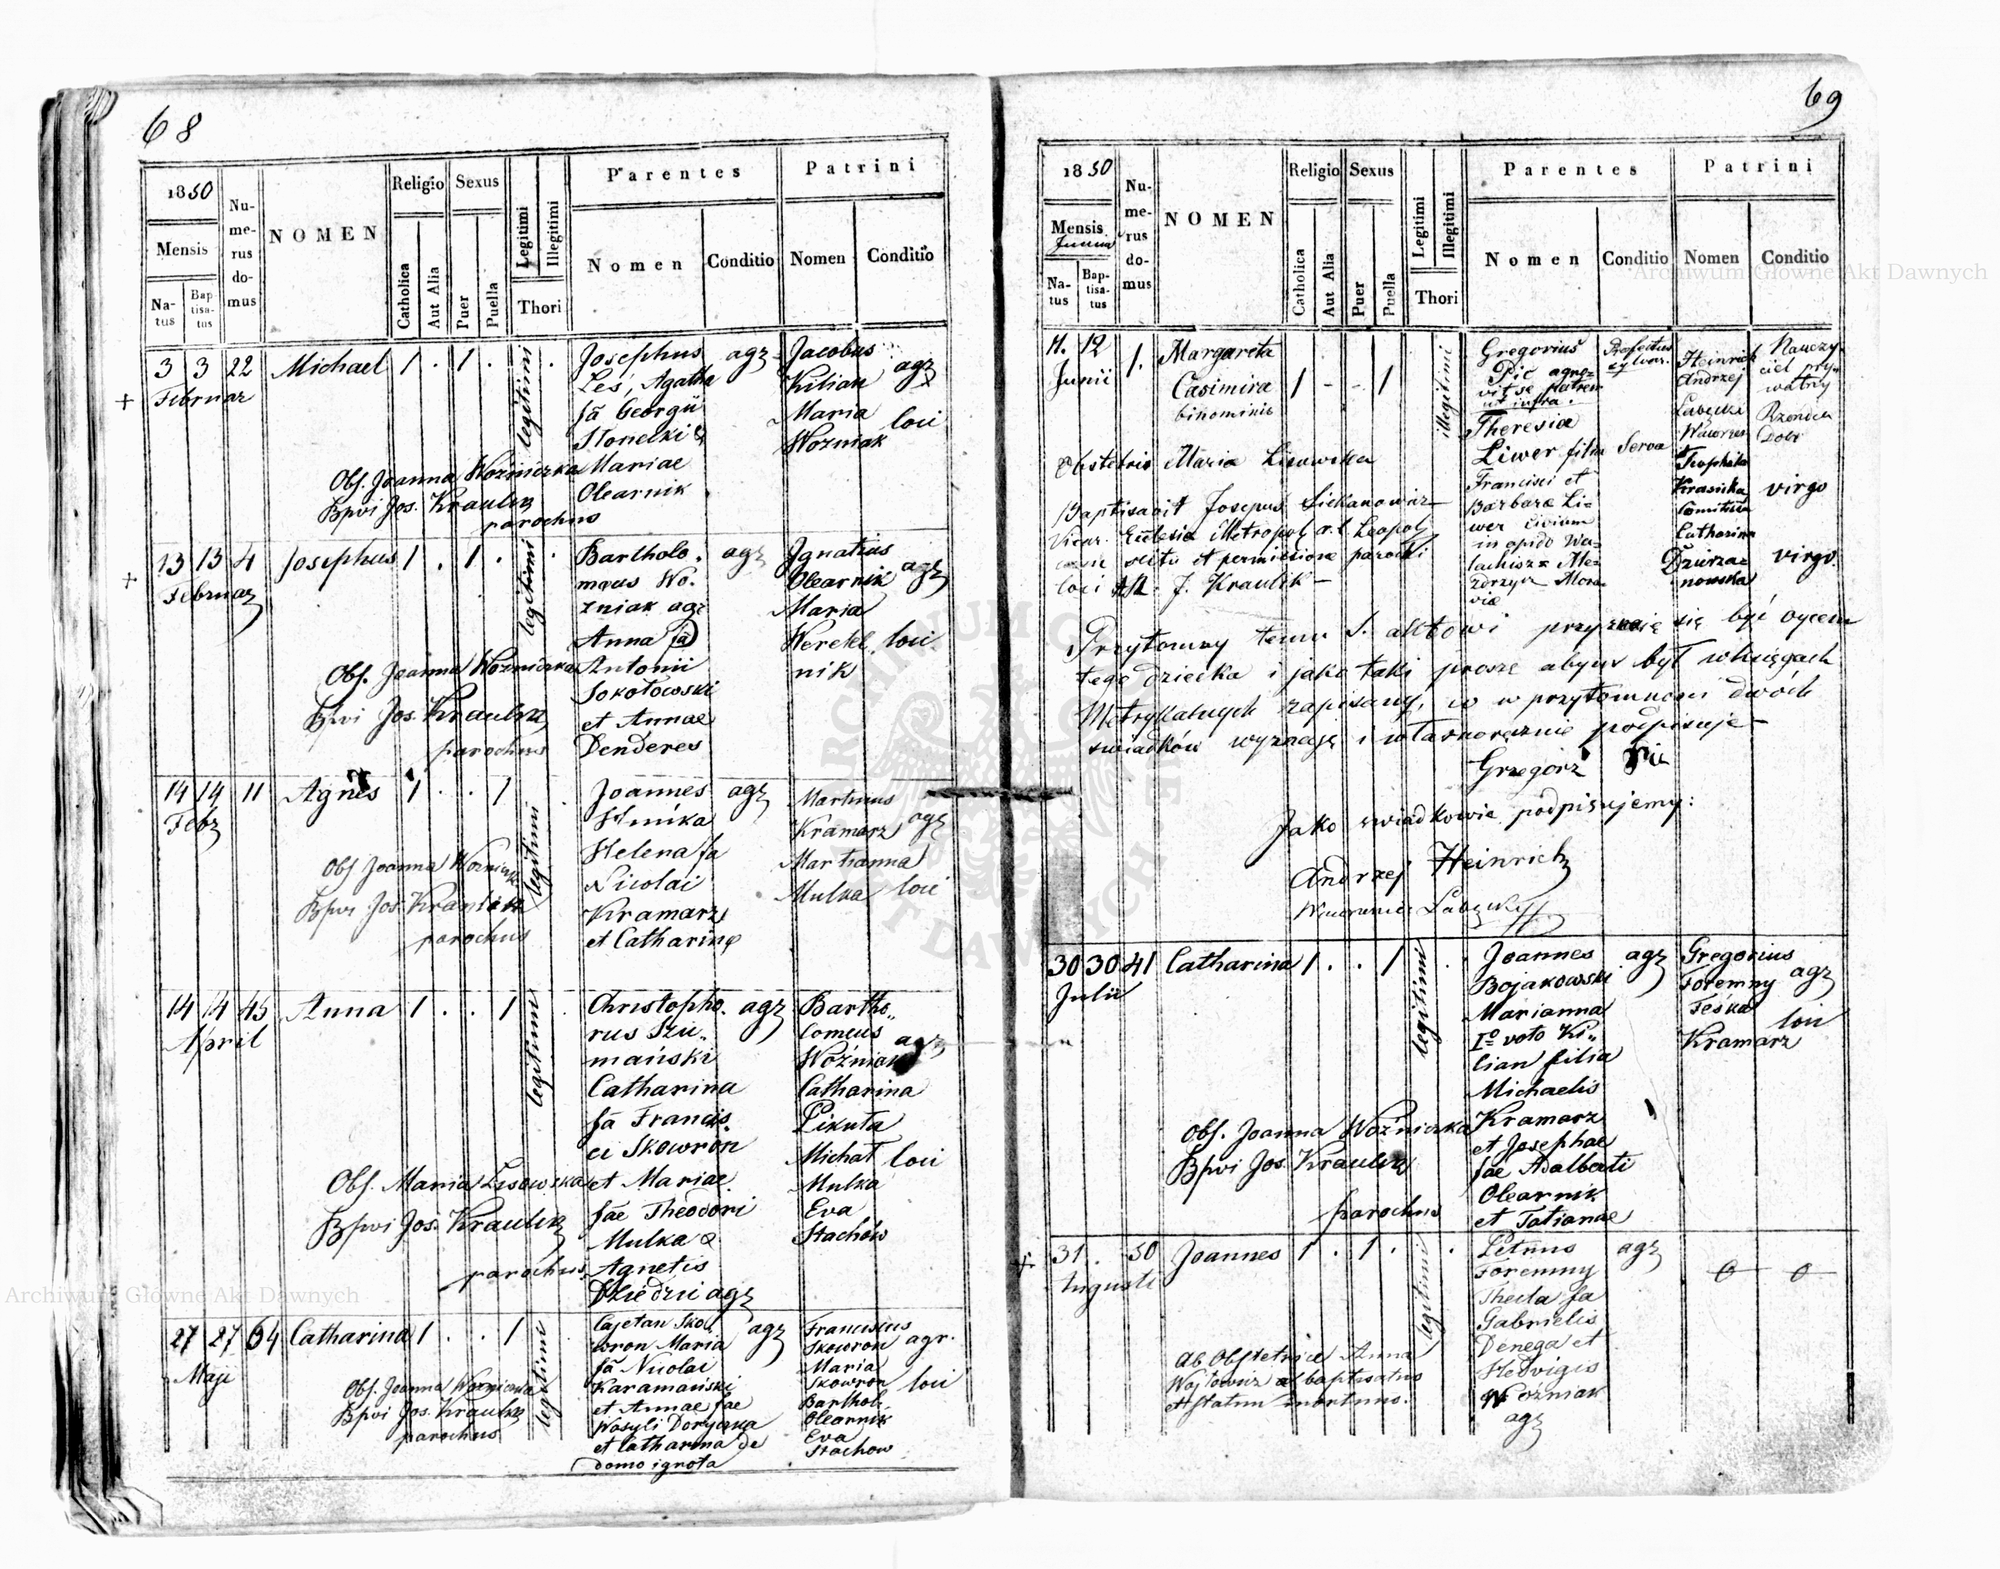 68
1850
Mensis
Natus
Baptisatus
Numerus domus
NOMEN
Religio
Catholica
Aut Alia
Sexus
Puer
Puella
Legitimi
Illegitimi
Thori
Parentes
Nomen
Conditio
Patrini
Nomen
Conditio
3 3 22 Michael 1 . 1 . legitimi . Josephus agr Jacobus
Februar
Leś, Agatha Kilian agr
fa Georgii Maria
Słonecki & Wozniak loci
Mariae
Olearnik
Obs. Joanna Wozniczka
Bpvi Jos. Kraulik
parochus
13 13 4 Josephus 1 . 1 . legitimi . Bartholo- agr Ignatius
Februar
maeus Wo- Olearnik agr
zniak agr Maria
Anna fa Werekl. loci
Antonii nik
Sokołowski
et Annae
Denderes
Obs. Joanna Wozniczka
Bpvi Jos. Kraulik
parochus
14 14 11 Agnes 1 . . 1 legitimi Joannes agr Martinus
Febr
Kramarz agr
Helena fa Marianna
Nicolai Mulka loci
Kramarz
et Catharinę
Obs Joanna Wozniczk
Bpvi Jos. Kraulik
parochus
14 14 45 Anna 1 . . 1 legitimi . Christopho- agr Bartho-
April
rus Szu- lomeus
mański Woźniak agr
Catharina Catharina
fa Francis- Pikuta
ci Skowron Michał loci
et Mariae Mulka
fae Theodori Eva
Mulka & Stachów
Agnetis
Dziedzic agr
Obs. Maria Lisowska
Bpvi Jos. Kraulik
parochus
27 27 64 Catharina 1 . . 1 legitimi Cajetan Sko- agr Franciscus
Maji
wron Maria Skowron agr.
fa Nicolai Maria
Karamański Skowron loci
et Annae fae Barthol.
Wasyli Doryczka Olearnik
et Catharina de Eva
domo ignota Stachow
Obs. Joanna Wozniczka
Bpvi Jos. Kraulik
parochus
69
1850
Mensis
Junius
Natus
Baptisatus
Numerus domus
NOMEN
Religio
Catholica
Aut Alia
Sexus
Puer
Puella
Legitimi
Illegitimi
Thori
Parentes
Nomen
Conditio
Patrini
Nomen
Conditio
11. 12 1. Margareta
Junii
Casimira 1 - - 1 illegitimi
binominis
Gregorius
Pic agno-
vit se patrem
ut infra.
Theresia
Liwer filia Serva
Francisci et
Barbara Li-
wer civium
in opido Wa-
Mora-
viae
Heinrich
Andrzej
Nauczy-
ciel pry-
watny
Teophila
Krasicka virgo
Comitissa
Catharina
Dzierza- virgo
nowska
Obstetrix Maria Lisowska
Baptisavit Josepus
Vicar. Eclesia Metropol r. l. Leopol
scitu et permisione parochi
loci J. Kraulik -
Przytomny temu S. aktowi przyznaię się być oycem
tego dziecka i jako taki proszę abym był w księgach
Metrykalnych zapisany, co w przytomności dwóch
świadków wyznaję i własnoręcznie podpisuję -
Grzegorz Pic
Jako swiadkowie podpisujemy:
Andrzej Heinrich
30 30 41 Catharina 1 . . 1 legitimi . Joannes agr Gregorius
Julii
Bojakowski Foremny agr
Marianna Feśka
Io voto Ki- Kramarz loci
lian filia
Michaelis
Kramarz
et Josephae
fae Adalberti
Olearnik
et Tatianae
Obs. Joanna Wozniczka
Bpvi Jos. Kraulik
parochus
31 . 50 Joannes 1 . 1 . legitimi . Petrus agr 0 0
Augusti
Foremny
Thecla fa
Gabrielis
Denega et
Hedvigis
Woźniak
agr
Ab Obstetrice Anna
Wojtowicz abbaptisatus
et statim mortuus.
Archiwum Główne Akt Dawnych
Archiwum Główne Akt Dawnych